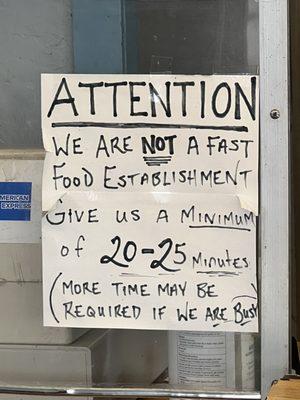 ATTENTION
WE ARE NOT A FAST
FOOD ESTABLISHMENT
GIVE US A MINIMUM
OF 20-25 MINUTES
(MORE TIME MAY BE
REQUIRED IF WE ARE BUSY)
AMERICAN
EXPRESS